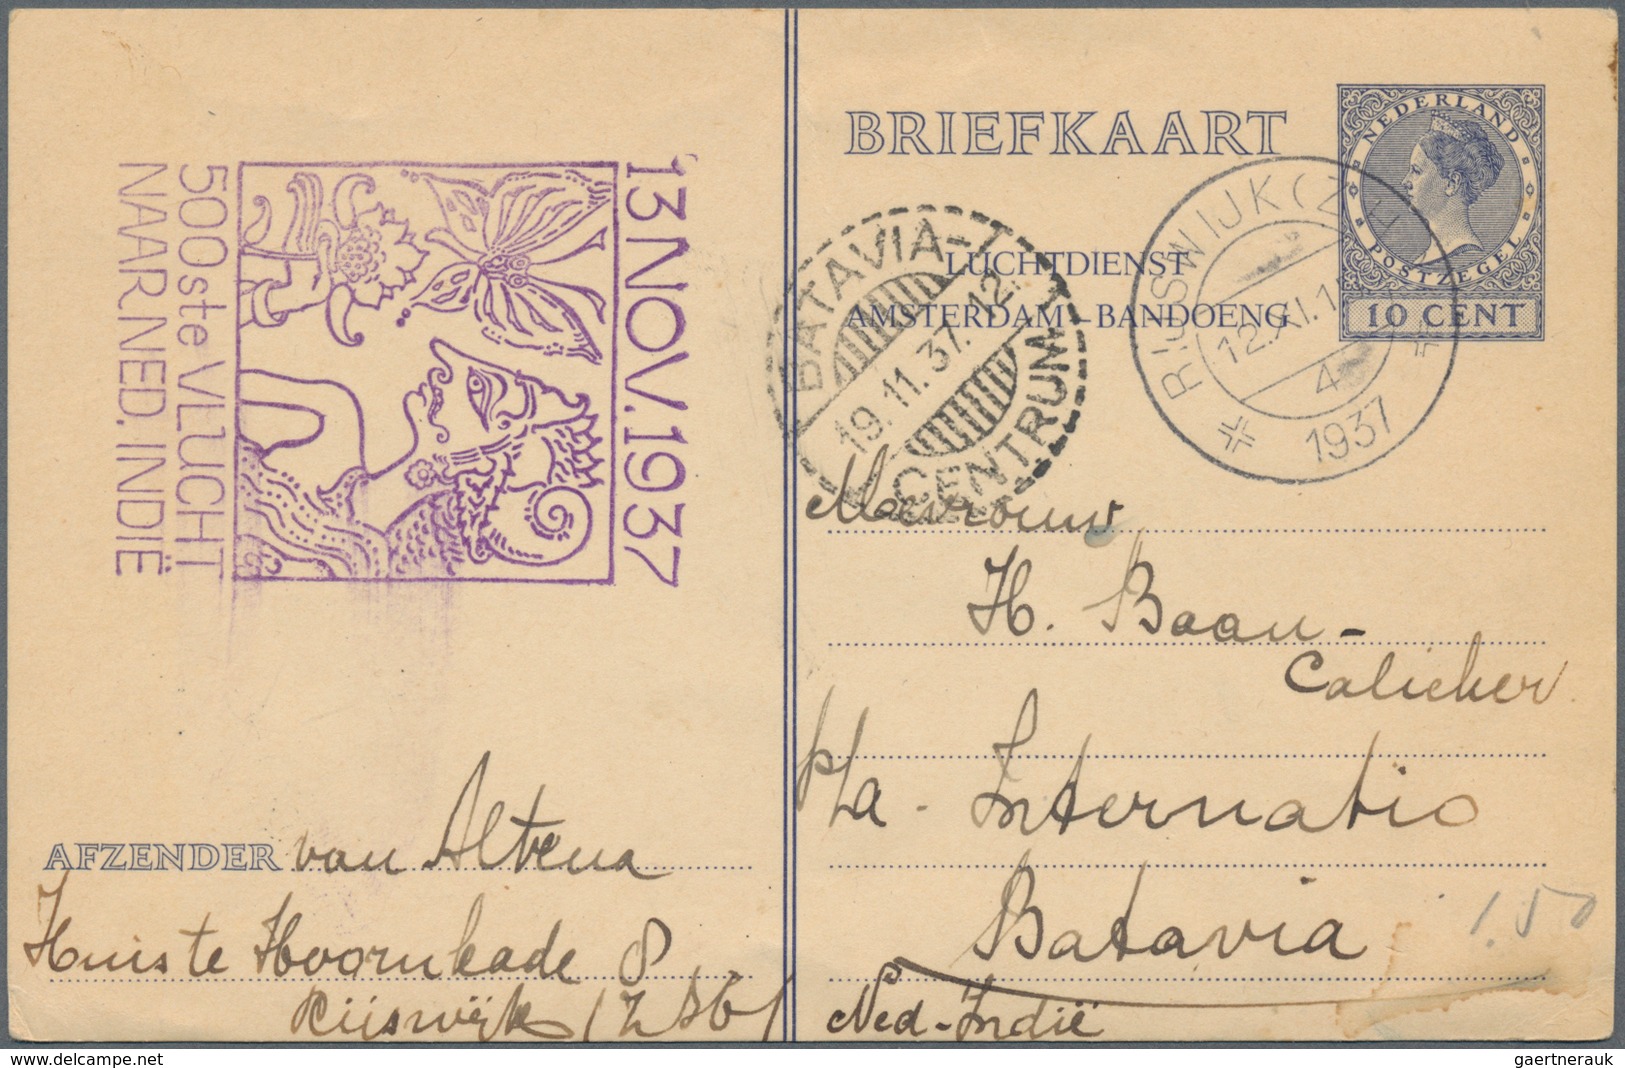 13 NOV. 1937
500ste VLUCHT
NAAR NED. INDIË
BRIEFKAART
NEDERLAND
POSTZEGEL
10 CENT
LUCHTDIENST
AMSTERDAM-BANDOENG
BATAVIA-
CENTRUM
19.11.37.12
RIJSWIJK (Z.H.
12.XI.1
4
1937
Mevrouw
H. Baan-
Calicher
p/a - Internatio
Batavia
Ned-Indië
1.50
AFZENDER van Altena
Huis te Hoornkade 8
Rijswijk
gaertnerauk